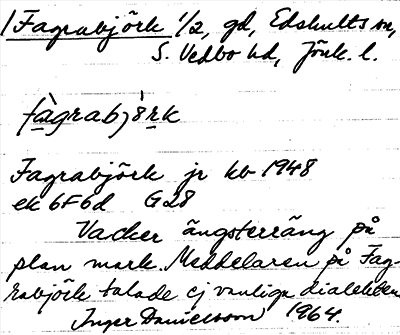 Fagrabjörk 1/2, gd, Edshults sn,
S. Vedbo hd, Jönk. l.
fàgrabjö̀rk
Fagrabjörk jr kb 1948
ek 6F6d G28
Vacker ängsterräng på
plan mark. Meddelaren på Fag-
rabjörk talade ej vanliga dialekten
Inger Danielsson 1964.